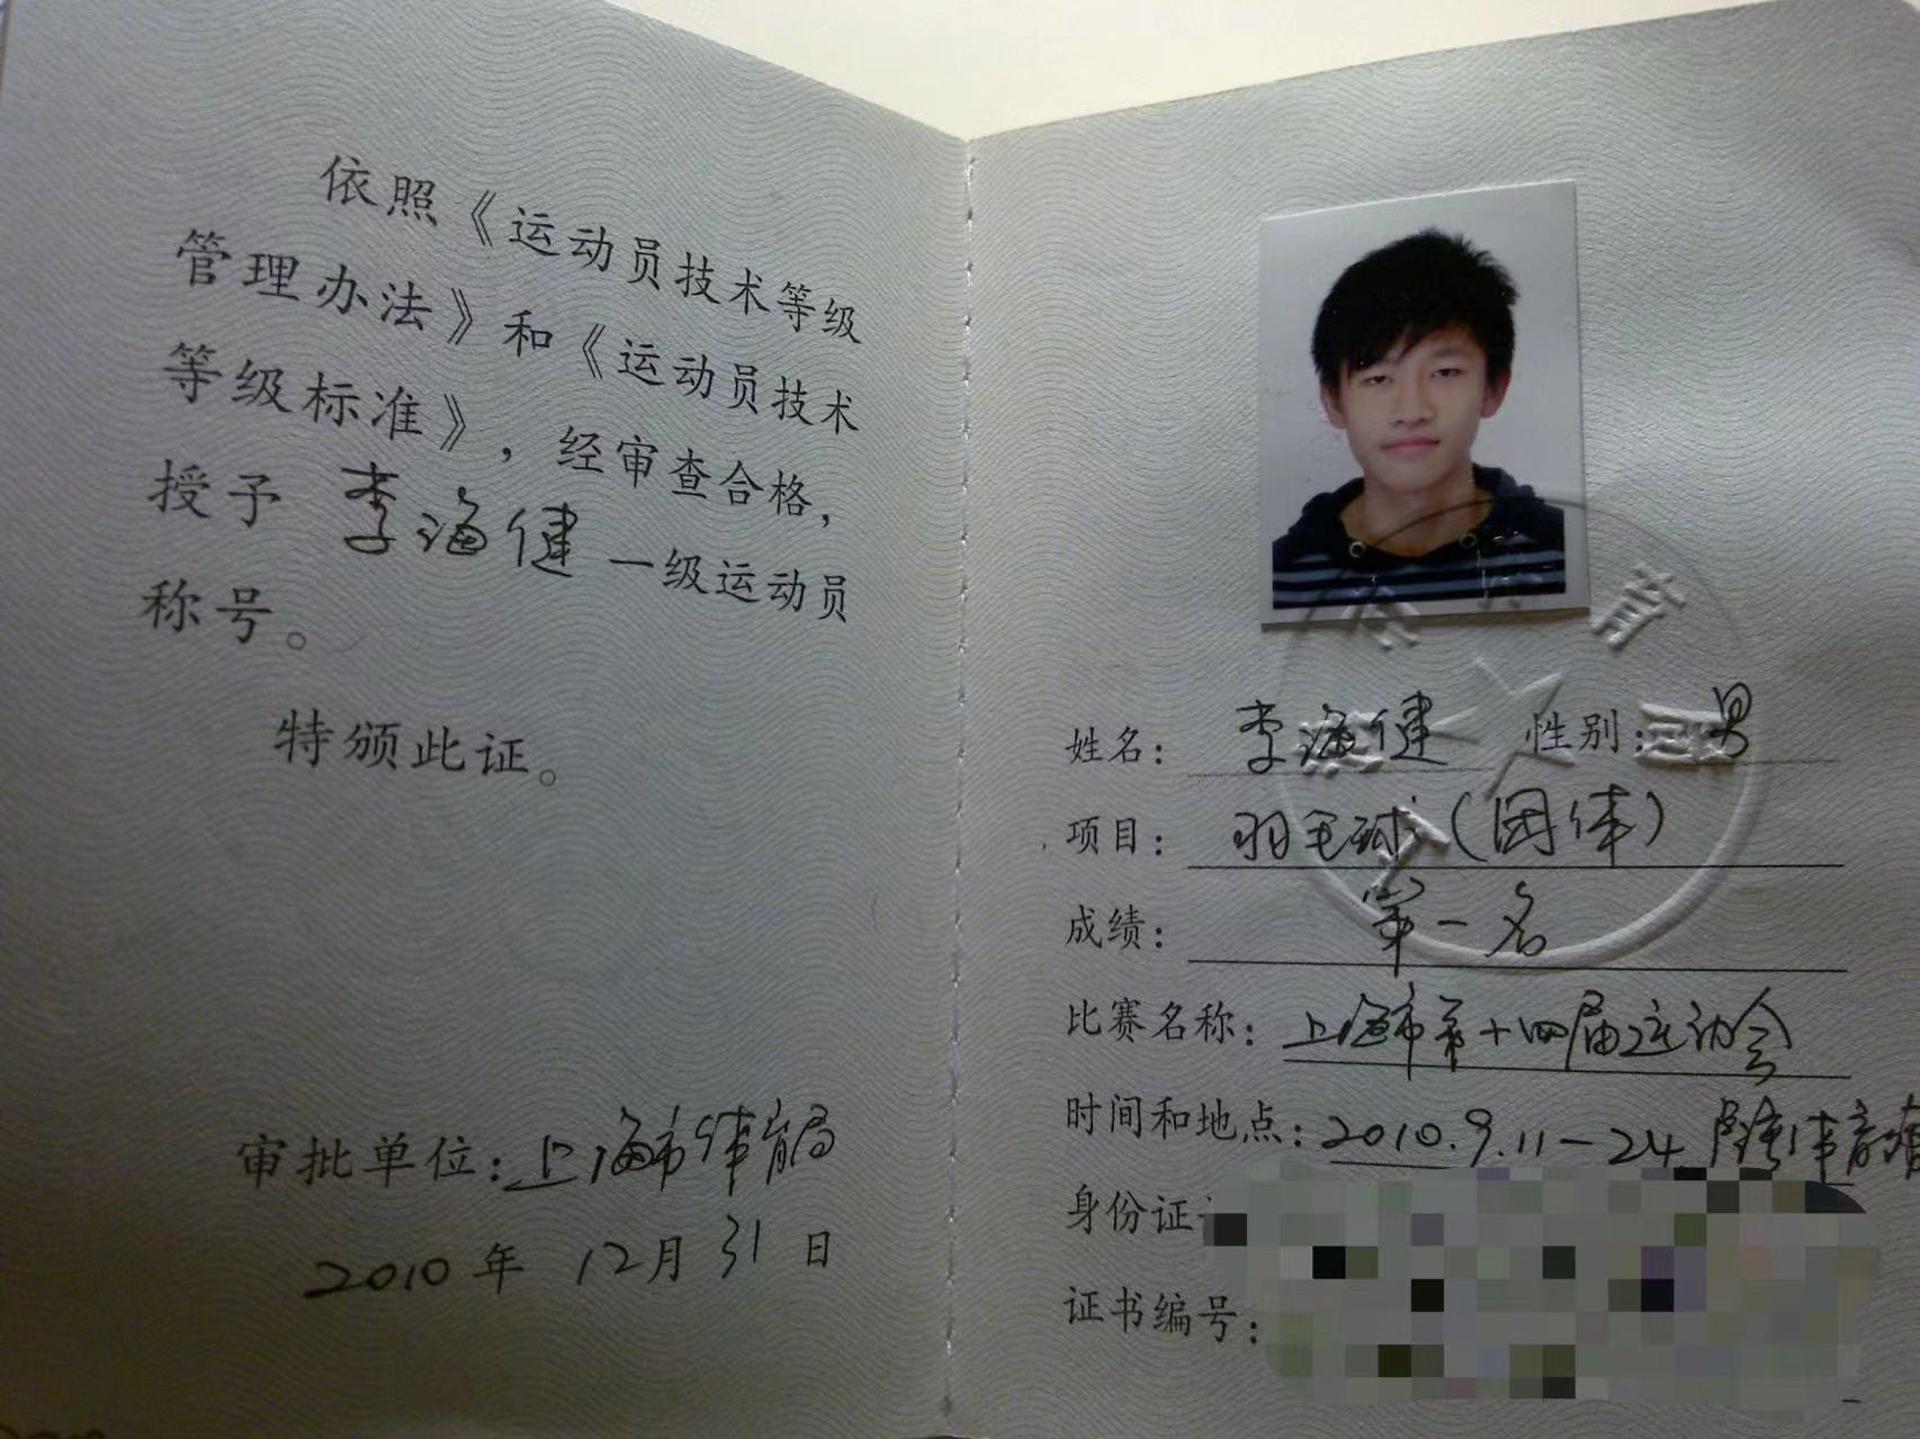 依照《运动员技术等级
管理办法》和《运动员技术
等级标准》，经审查合格，
授予 李海健 一级运动员
称号。
特颁此证。
审批单位：上海市体育局
2010年 12月 31日
姓名： 李海健 性别：男
项目： 羽毛球（团体）
成绩： 第一名
比赛名称：上海市第十四届运动会
时间和地点：2010.9.11-24 体育馆
身份证
证书编号：